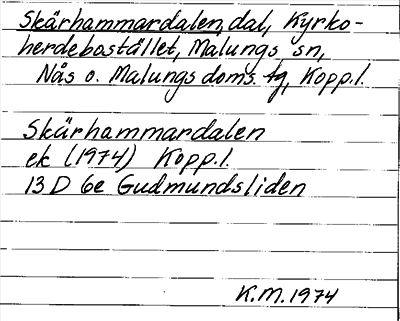 Skärhammardalen, dal, Kyrko-
herdebostället, Malungs sn,
Nås o. Malungs doms. tg, Kopp.l.
Skärhammardalen
ek (1974) Kopp.l.
13 D 6e Gudmundsliden
K.M. 1974